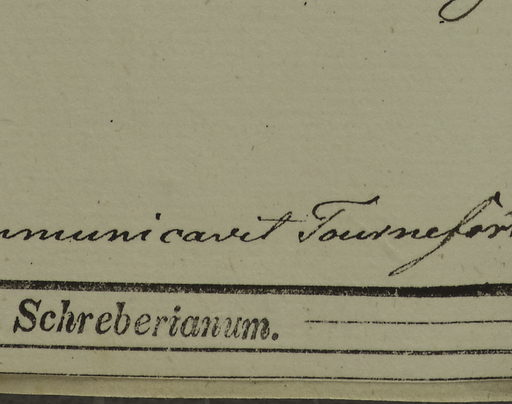 mmunicavit Tournefor
Schreberianum.